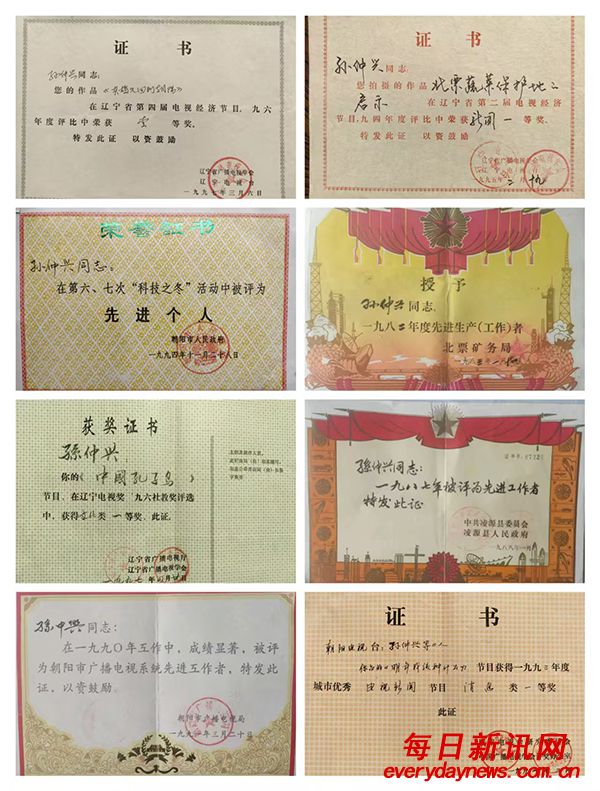 证书
孙仲兴同志：
您的作品
在辽宁省第四届电视经济节目，九六
年度评比中荣获 壹 等奖。
特发此证 以资鼓励
辽宁省广播电视学会
辽宁电视台
一九九七年三月六日
证书
孙仲兴同志：
您拍摄的作品 北票蔬菜保护地之
启示 在辽宁省第二届电视经济
节目，九四年度评比中荣获 新闻 一 等奖。
特发此证 以资鼓励
辽宁省广播电视学会
辽宁电视台
一九九五年二月
荣誉证书
孙仲兴同志：
在第六、七次“科技之冬”活动中被评为
先进个人
朝阳市人民政府
一九九四年十一月二十八日
授予
孙仲兴同志，
一九八二年度先进生产(工作)者
北票矿务局
一九八三年一月
获奖证书
孙仲兴：
你的《中國孔子鸟》
节目，在辽宁电视奖’九六社教奖评选
中，获得 类一等奖。此证。
辽宁省广播电视厅
辽宁省广播电视学会
一九九七年
孙仲兴同志：
一九八七年被评为先进工作者
特发此证
中共凌源县委员会
凌源县人民政府
一九八八年一月
孫仲興同志：
在一九九〇年工作中，成绩显著，被评
为朝阳市广播电视系统先进工作者，特发此
证，以资鼓励。
朝阳市广播电视局
一九九一年三月二十日
证书
朝阳电视台：孙仲兴等二人
节目获得一九九三年度
城市优秀 电视新闻 节目 消息 类一等奖
此证
每日新讯网
everydaynews.com.cn